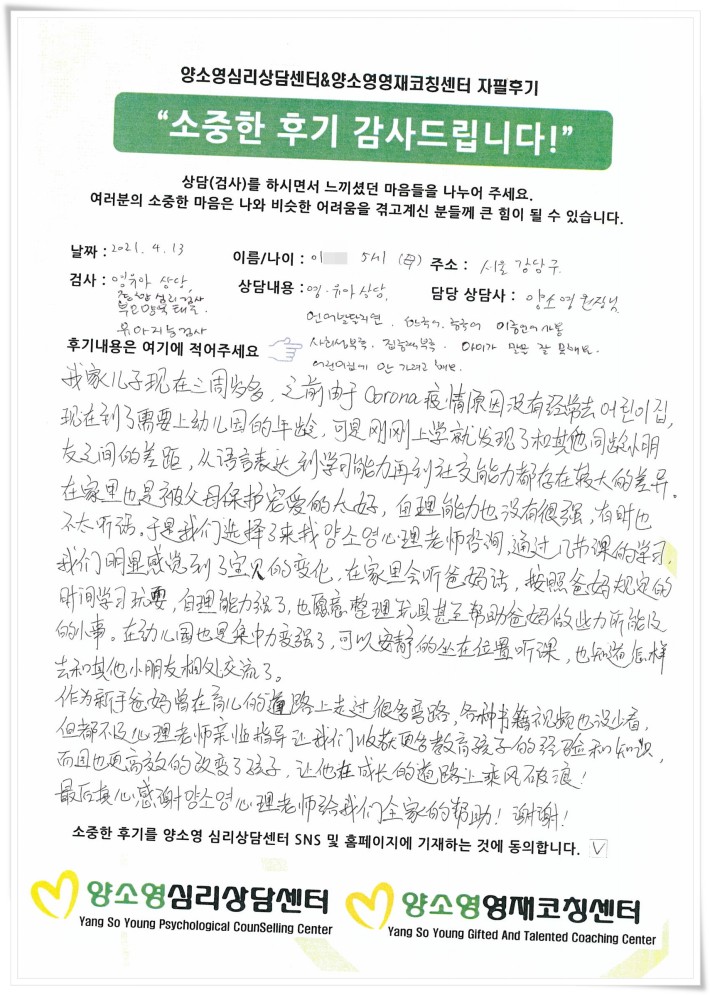 양소영심리상담센터&양소영영재코칭센터 자필후기
“소중한 후기 감사드립니다!”
상담(검사)를 하시면서 느끼셨던 마음들을 나누어 주세요.
여러분의 소중한 마음은 나와 비슷한 어려움을 겪고계신 분들께 큰 힘이 될 수 있습니다.
날짜 : 2021. 4. 13 이름/나이 : 이 5세 (모) 주소 : 서울 강남구
검사 : 영유아 상담, 상담내용 : 영·유아상담, 담당 상담사 : 양소영 원장님
종합심리검사
부모양육태도 언어발달지연. 한국어. 중국어 이중언어가정
유아지능검사
후기내용은 여기에 적어주세요 사회성부족. 집중력부족. 아이가 말을 잘 못해요.
어린이집에 안 가려고 해요.
我家儿子现在三周岁多，之前由于Corona疫情原因没有经常去어린이집,
现在到了需要上幼儿园的年龄，可是刚刚上学就发现了和其他同龄小朋
友之间的差距，从语言表达到学习能力再到社交能力都存在较大的差异。
在家里也是被父母保护宠爱的太好，自理能力也没有很强，有时也
不太听话。于是我们选择了来找양소영心理老师咨询，通过几节课的学习，
我们明显感觉到了宝贝的变化，在家里会听爸妈话，按照爸妈规定的
时间学习玩耍，自理能力强了，也愿意整理玩具甚至帮助爸妈做些力所能及
的小事。在幼儿园也是集中力变强了，可以安静的坐在位置听课，也知道怎样
去和其他小朋友相处交流了。
作为新手爸妈曾在育儿的道路上走过很多弯路，各种书籍视频也没少看，
但都不及心理老师亲临指导让我们收获更多教育孩子的经验和知识，
而且也更高效的改变了孩子，让他在成长的道路上乘风破浪！
最后真心感谢양소영心理老师给我们全家的帮助！谢谢！
소중한 후기를 양소영 심리상담센터 SNS 및 홈페이지에 기재하는 것에 동의합니다. ☑
양소영심리상담센터 양소영영재코칭센터
Yang So Young Psychological CounSelling Center Yang So Young Gifted And Talented Coaching Center